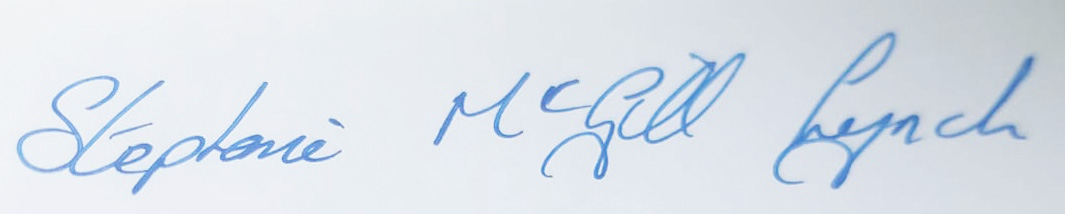 Stephanie McGill Lynch